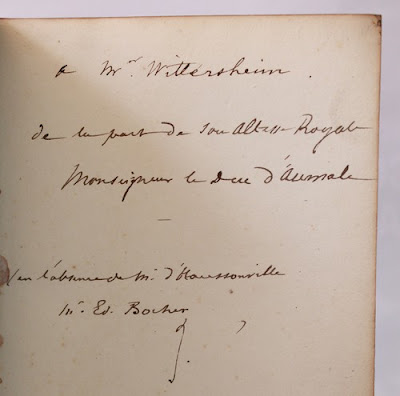 a Mr. Wittersheim.
de la part de Son Altesse Royale
Monseigneur le Duc d'Aumale
(en l'absence de M. d'Haussonville
Mr. Ed. Bocher